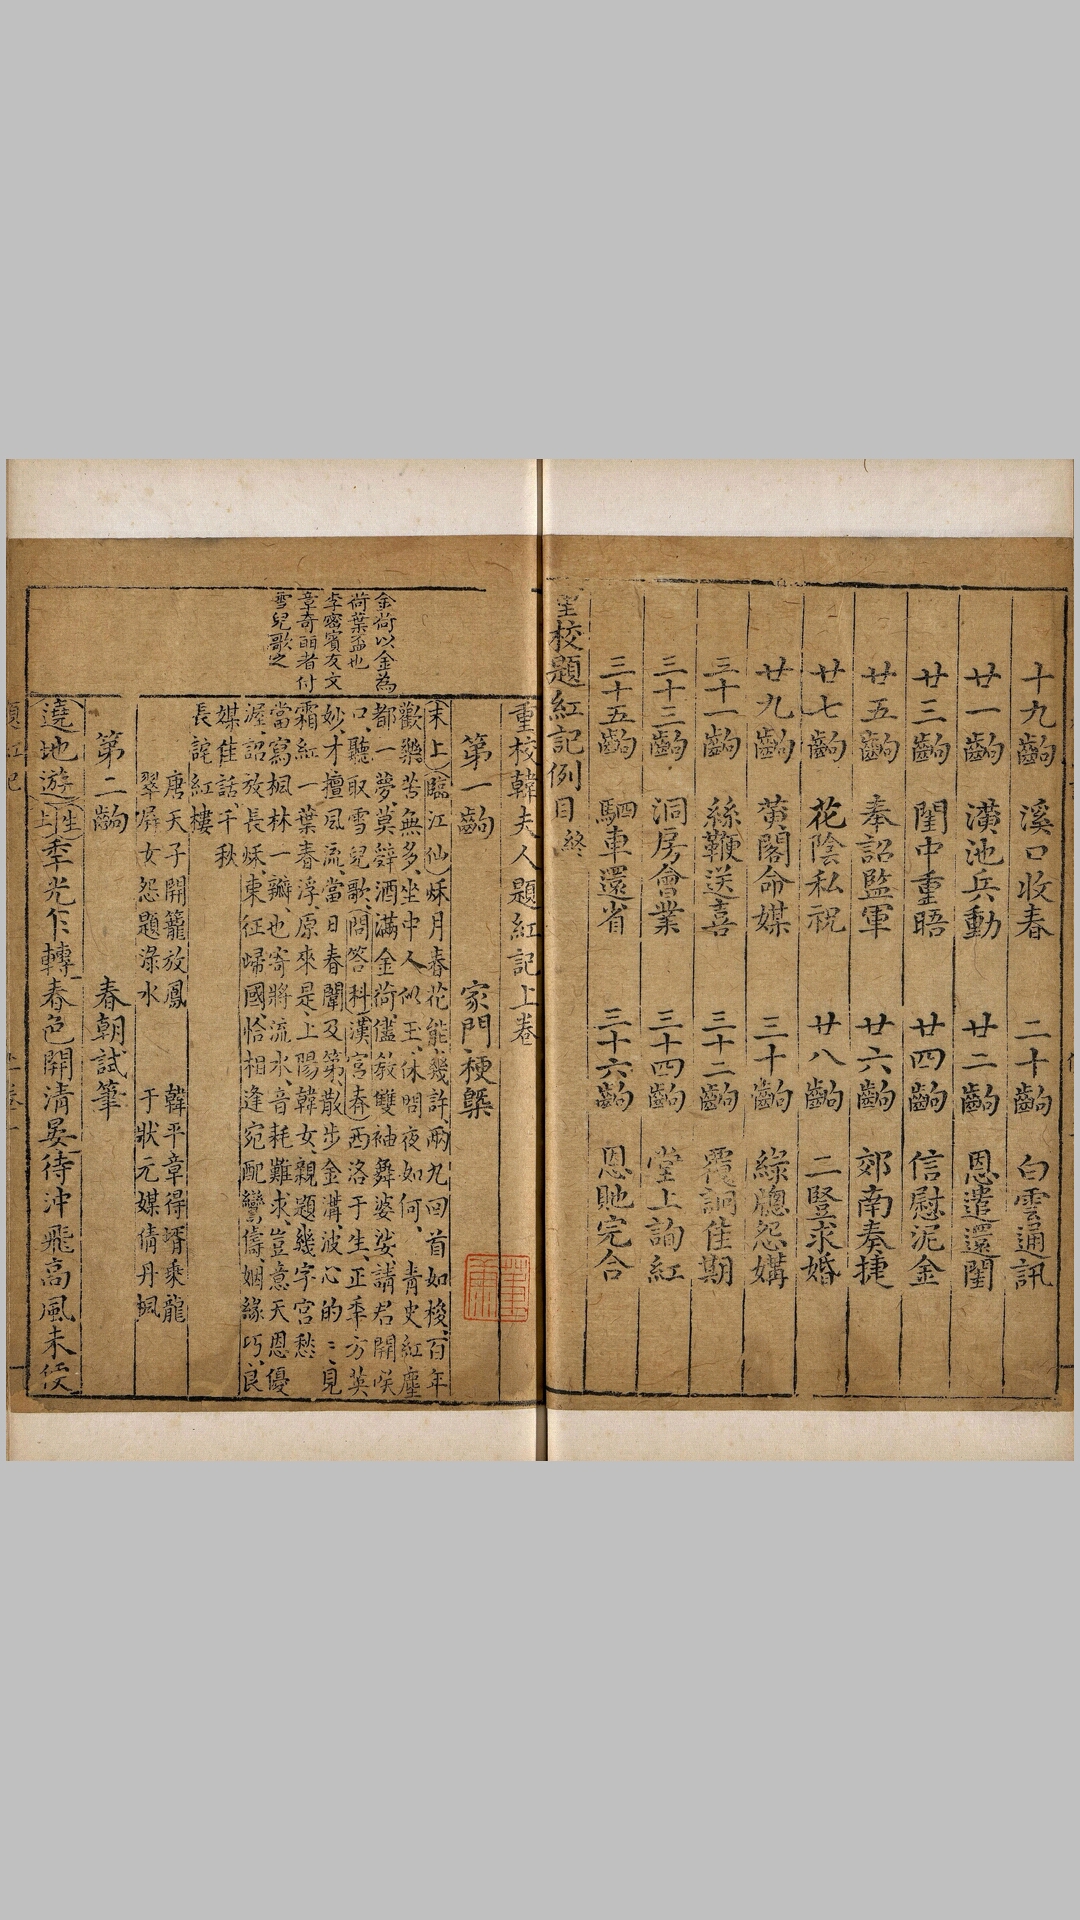 十九齣 溪口收春 二十齣 白雲通訊
廿一齣 潢池兵動 廿二齣 恩遣還閨
廿三齣 閨中重晤 廿四齣 信慰泥金
廿五齣 奉詔監軍 廿六齣 郊南奏捷
廿七齣 花陰私祝 廿八齣 二豎求婚
廿九齣 黃閣命媒 三十齣 綠牕怨媾
三十一齣 絲鞭送喜 三十二齣 覆詗佳期
三十三齣 洞房會業 三十四齣 堂上詢紅
三十五齣 駟車還省 三十六齣 恩貤完合
重校題紅記例目終
重校韓夫人題紅記上卷
第一齣 家門梗槩
末上 臨江仙 秌月春花能幾許、兩丸回首如梭、百年
歡樂苦無多、坐中人似玉、休問夜如何、青史紅塵
都一夢、莫辤酒滿金荷、儘教雙袖舞婆娑、請君開笑
口、聽取雪兒歌、問答科 漢宮春 西洛于生、正秊方英
妙、才擅風流、當日春闈及第、散步金溝、波心的〻、見
霜紅一葉春浮、原來是、上陽韓女、親題幾字宮愁
當寫楓林一瓣、也寄將流水、音耗難求、豈意天恩優
渥、詔放長秌、東征歸國、恰相逢宛配鸞儔、姻緣巧、良
媒佳話千秋
長詫紅樓
唐天子開籠放鳳 韓平章得壻乘龍
翠屏女怨題淥水 于狀元媒倩丹楓
第二齣 春朝試筆
遶地遊 生上 秊光乍轉、春色開清晏、待沖飛高風未便
金荷以金為
荷葉盃也
李密賓友文
章奇麗者付
雪兒歌之
題紅記 上卷 一